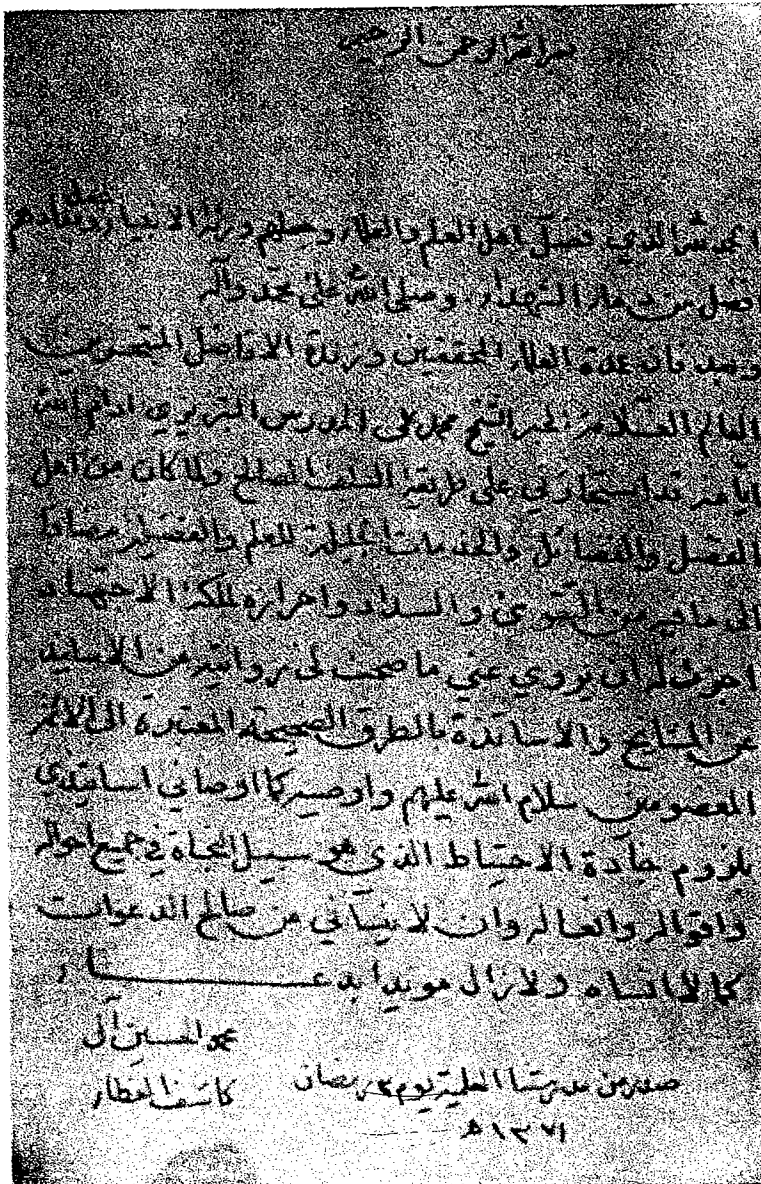 بسم الله الرحمن الرحيم
الحمد لله الذي فضل اهل العلم والعلماء وجعلهم ورثة الانبياء وجعل مدادهم
افضل من دماء الشهداء وصلى الله على محمد وآله
وبعد فان عمدة العلماء المحققين وزبدة الافاضل المتبحرين
العالم العلامة الحبر الشيخ محمد علي المدرس التبريزي ادام الله
ايامه قد استجازني على طريقة السلف الصالح ولما كان من اهل
الفضل والفضائل والخدمات الجليلة للعلم والفضيلة مضافا
الى ما فيه من التقوى والسداد واحرازه ملكة الاجتهاد
اجزت له ان يروي عني ما صحت لي روايته من الاسانيد
عن المشايخ والاساتذة بالطرق الصحيحة المعتبرة الى الائمة
المعصومين سلام الله عليهم واوصيه كما اوصاني اساتيذي
بلزوم جادة الاحتياط الذي هو سبيل النجاة في جميع احواله
واقواله وافعاله وان لا ينساني من صالح الدعوات
كما لا انساه ولا زال مؤيدا بدعاء
محمد الحسين آل
كاشف الغطاء
صدر من مدرستنا العلمية يوم رمضان
١٣٧١ هـ